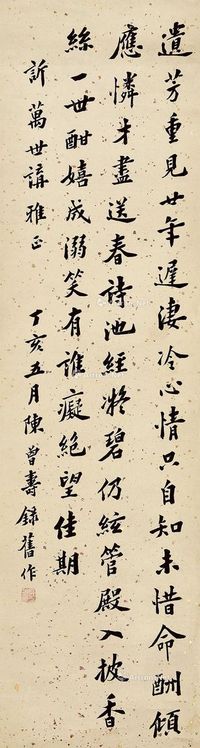 遺芳重見廿年遲淒冷心情只自知未惜命酬傾
應憐才盡送春詩池經凝碧仍絃管殿入披香
絲一世酣嬉成溺笑有誰癡絕望佳期
訢萬世講雅正
丁亥五月陳曾壽錄舊作